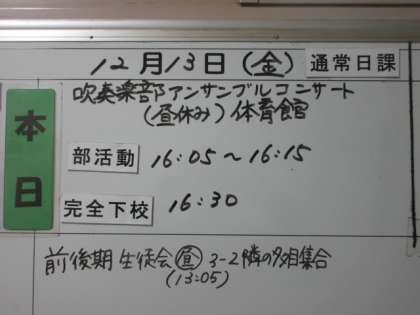 12月13日(金) 通常日課
本日
吹奏楽部アンサンブルコンサート
(昼休み) 体育館
部活動 16:05〜16:15
完全下校 16:30
前後期生徒会 ㊐ 3-2隣の多目集合
(13:05)